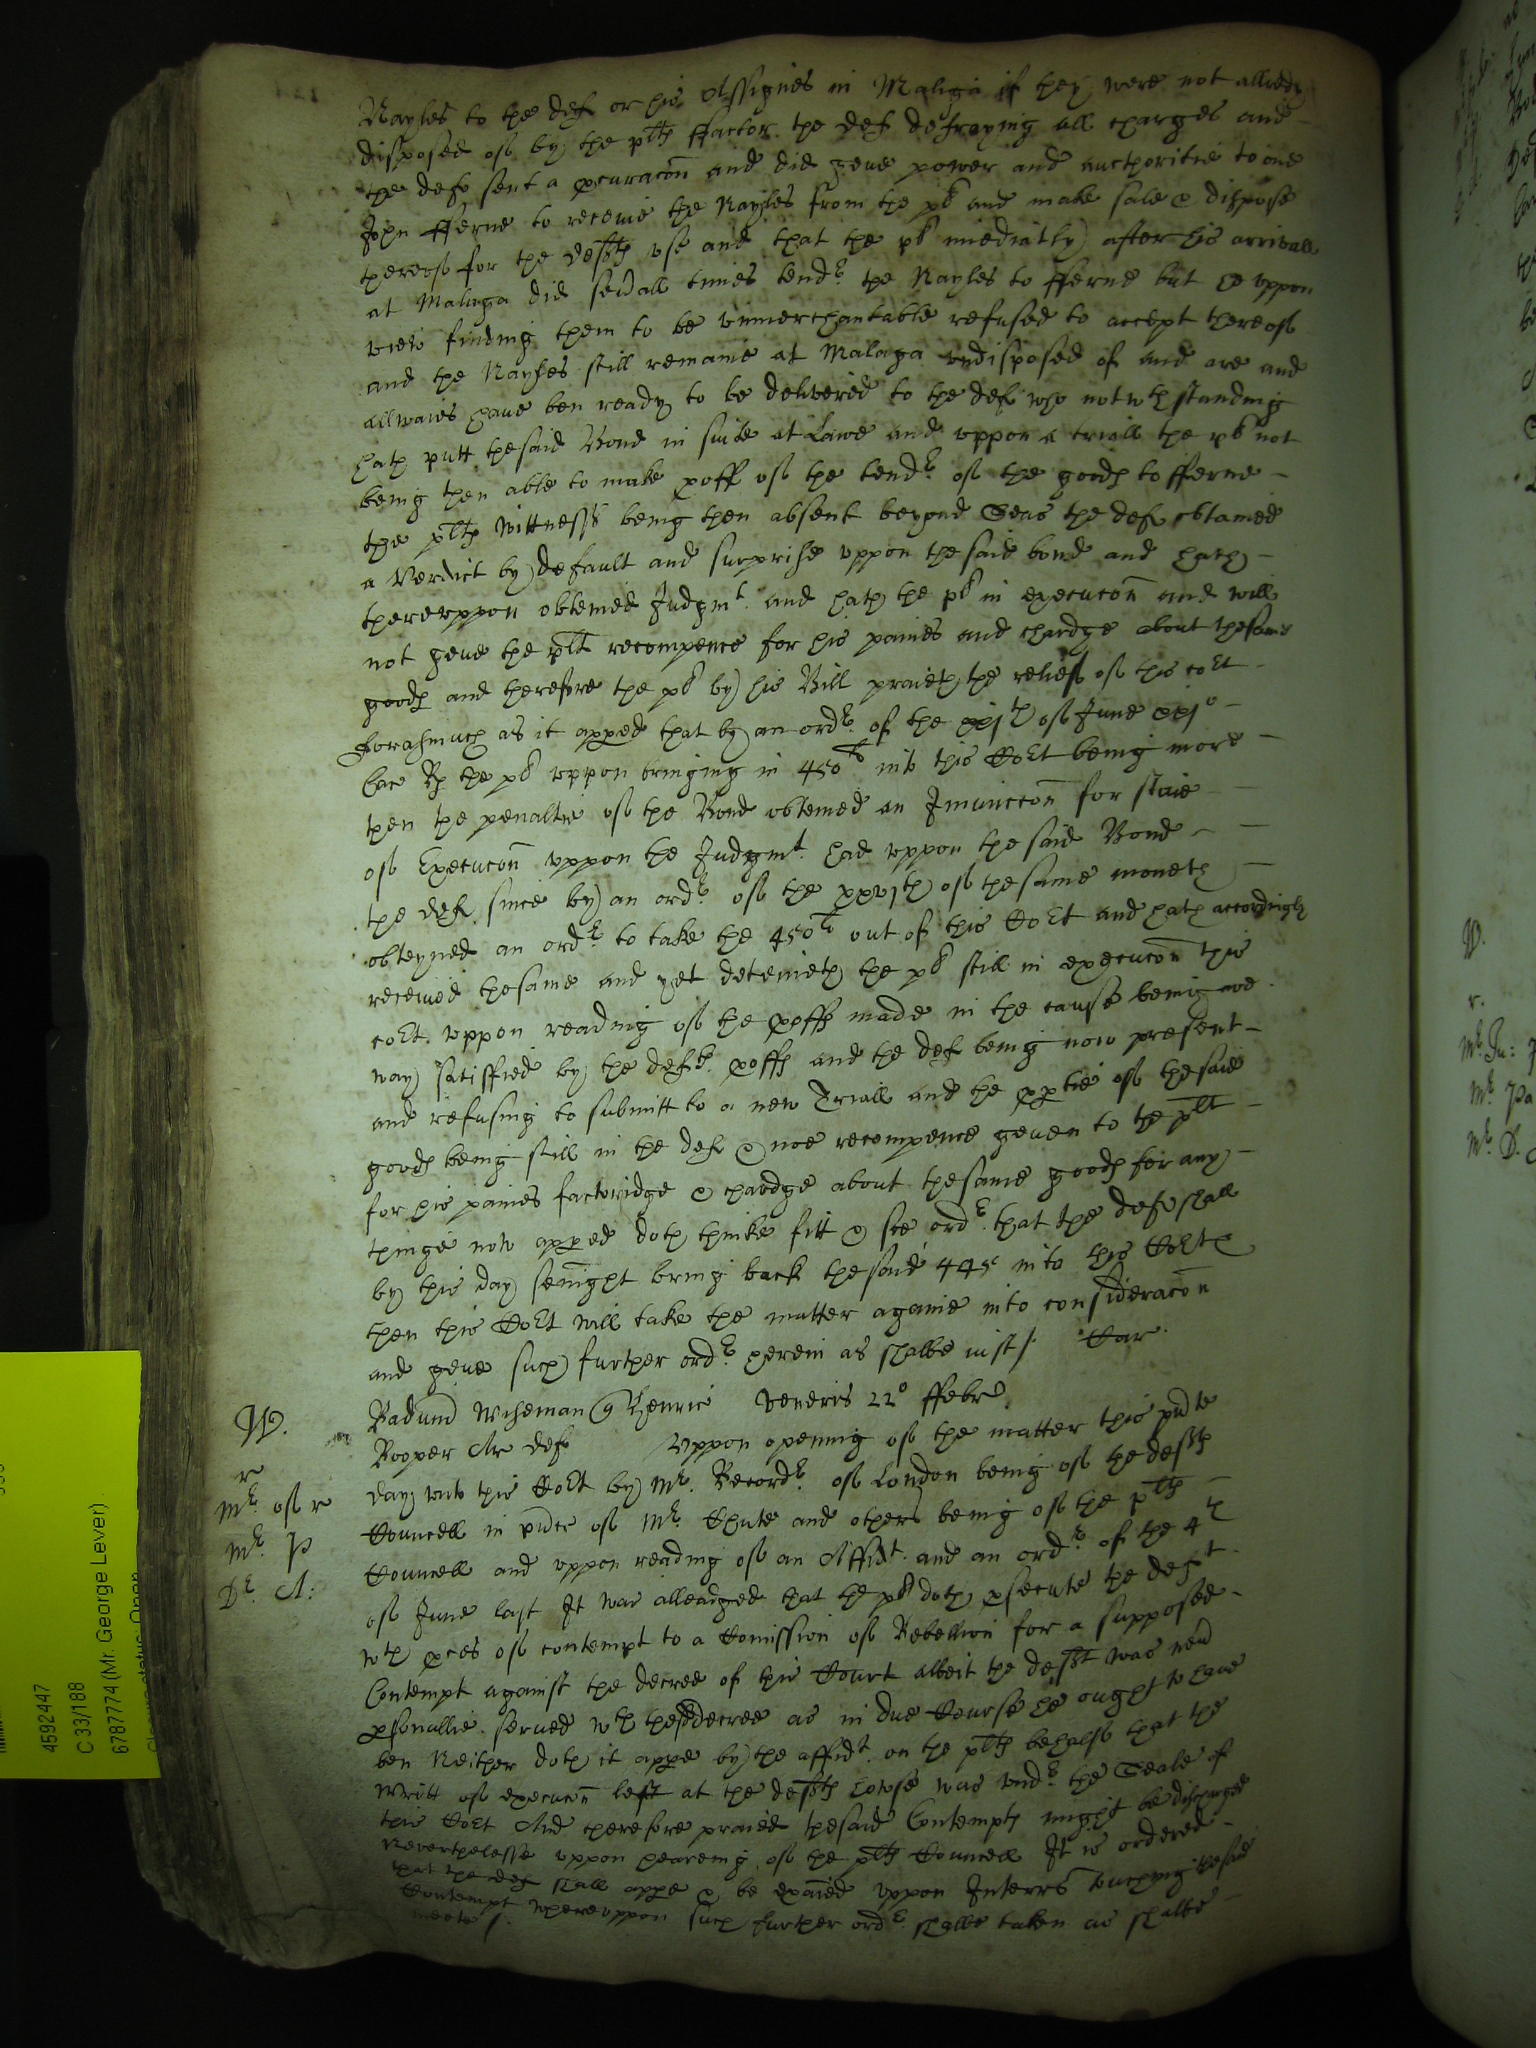 Nayles to the def or his Assignes in Maliga if they were not allredy
disposed of by the plts ffactor the def defraying all charges and
the def sent a pcuracon and did geve power and aucthoritie to one
John fferne to receive the Nayles from the pl and make sale & dispose
thereof for the defts use and that the pl imediatly after his arrivall
at Malaga did sevall times tendr the Nayles to fferne but he uppon
view finding them to be unmerchantable refused to accept thereof
and the Nayles still remaine at Malaga undisposed of and are and
allwaies have ben ready to be delivered to the def who notwthstanding
hath putt the said Bond in suite at Lawe and uppon a triall the pl not
being then able to make proff of the tendr of the goods to fferne
the plts wittnesses being then absent beyond Seas the def obtained
a Verdict by default and surprise uppon the said bond and hath
thereuppon obteined Judgmt and hath the pl in execucon and will
not geve the plt recompence for his paines and chardge about the same
goods and therefore the pl by his Bill praieth the relief of this cort
forasmuch as it apped that by an ordr of the xxjth of June xxjo
Jac R the pl uppon bringing in 450l into this Cort being more
then the penaltie of the Bond obteined an Iniunccon for staie
of Execucon uppon the Judgmt had uppon the said Bond
the def since by an ordr of the xxvjth of the same moneth
obteyned an ordr to take the 450l out of this Cort and hath accordingly
received the same and yet deteineth the pl still in execucon this
cort uppon reading of the proffs made in the cause being noe
way satisfied by the defts proffs and the def being now present
and refusing to submitt to a new Triall and the pptie of the said
goods being still in the def & noe recompence geven to the plt
for his paines factoridge & chardge about the same goods for any
thinge now apped doth thinke fitt & soe ordr that the def shall
by this day senight bring back the said 445 into this Cort &
then this Cort will take the matter againe into consideracon
and geve such further ordr herein as shalbe iust /. Car
W. Wiseman Henrici Veneris 22o ffebr
r Rooper Ar def Uppon opening of the matter this pnte
Mr of r day unto this Cort by Mr Recordr of London being of the defts
Mr P Councell in pnce of Mr Chute and others being of the plts
Dr A: Councell and uppon reading of an Affidt and an ordr of the 4th
of June last It was alleadged that the pl doth psecute the deft
wth pces of contempt to a Comission of Rebellion for a supposed
Contempt against the decree of this Court albeit the deft was nevr
psonallie served wth the sd decree as in due Course he ought to have
ben Neither doth it appe by the affidt on the plts behalfe that the
Writt of execucon left at the defts howse was undr the Seale of
this Cort And therefore praied the said Contempts might be discharged
Neverthelesse uppon hearing of the plts Councell It is ordered
that the def shall appe & be exaied uppon Interrs touching the said
Contempt whereuppon such further ordr shalbe taken as shalbe
meete /.
4592447
C 33/188
6787774 (Mr. George Lever)